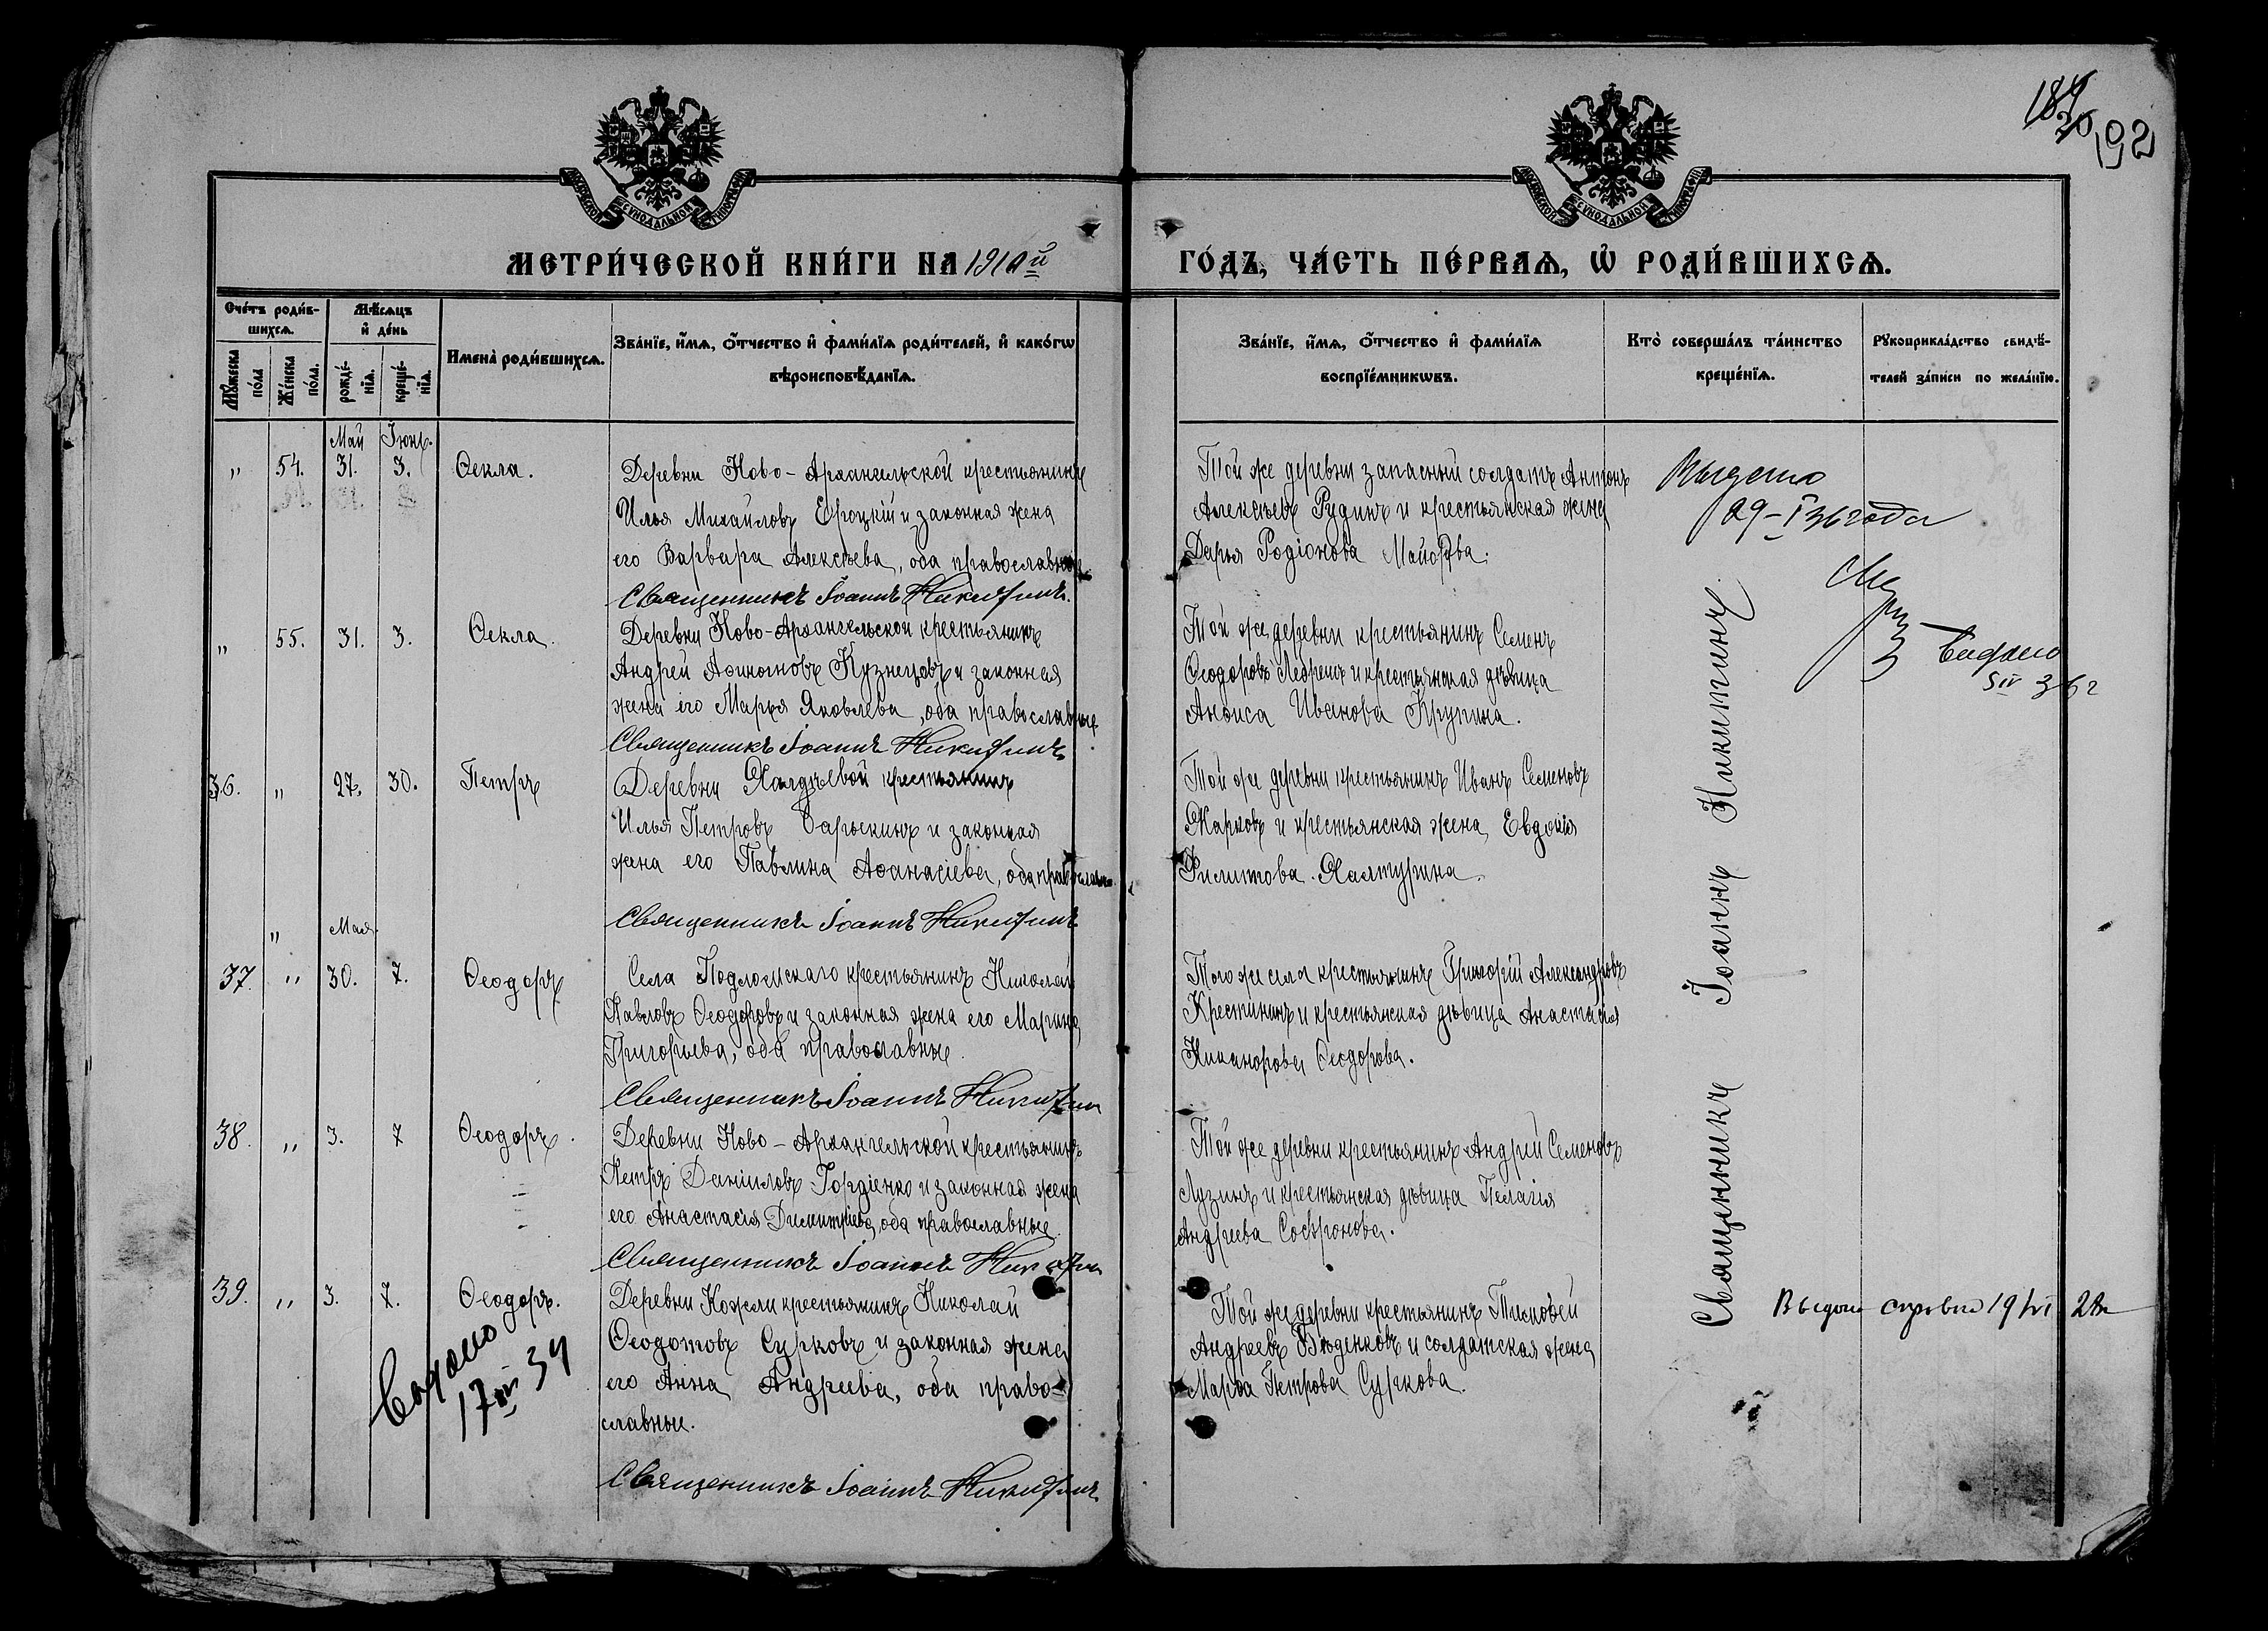 189
192
МОСКОВСКОЙ СѴНОДАЛЬНОЙ ТИПОГРАФІИ
МОСКОВСКОЙ СѴНОДАЛЬНОЙ ТИПОГРАФІИ
МЕТРИ́ЧЕСКОЙ КНИ́ГИ НА 1910й
ГО́ДЪ, ЧА́СТЬ ПЕ́РВАѦ, Ѡ҆ РОДИ́ВШИХСѦ.
Сче́тъ роди́в-
шихсѧ.
Мꙋ́жеска
по́ла
Же́нска
по́ла.
Мѣ́сѧцъ
и҆ де́нь
рожде́-
нїѧ.
креще́-
нїѧ.
Имена̀ роди́вшихсѧ.
Зва́нїе, и҆́мѧ, ѻ҆́тчество и҆ фами́лїѧ роди́телей, и҆ како́гѡ
вѣроисповѣ́данїѧ.
Зва́нїе, и҆́мѧ, ѻ҆́тчество и҆ фами́лїѧ
воспрїе́мникѡвъ.
Кто̀ соверша́лъ та́инство
креще́нїѧ.
Рꙋкоприкла́дство свидѣ́-
телей за́писи по жела́нїю.
Май Іюнь.
" 54. 31. 3. Ѳекла.
Деревни Ново-Архангельской крестьянинъ
Илья Михайловъ Ероцкій и законная жена
его Варвара Алексѣева, оба православные
Священникъ Іоаннъ Никитинъ.
Той же деревни запасный солдатъ Антонъ
Алексѣевъ Рудинъ и крестьянская жена
Дарья Родіонова Майорова.
29-I 36 года
" 55. 31. 3. Ѳекла.
Деревни Ново-Архангельской крестьянинъ
Андрей Аѳиногеновъ Кузнецовъ и законная
жена его Марья Яковлева, оба православные
Священникъ Іоаннъ Никитинъ
Той же деревни крестьянинъ Семенъ
Ѳеодоровъ и крестьянская дѣвица
Анѳиса Иванова Крупина.
Выдано
5 IV 36 г
36. " 27. 30. Петръ
Деревни Халдѣевой крестьянинъ
Илья Петровъ и законная
жена его Павлина Аѳанасіева, оба православные
Священникъ Іоаннъ Никитинъ
Той же деревни крестьянинъ Иванъ Семеновъ
Жарковъ и крестьянская жена Евдокія
Филиппова Халтурина.
" Мая.
37. " 30. 7. Ѳеодоръ
Села крестьянинъ Николай
Павловъ Ѳеодоровъ и законная жена его Марина
Григорьева, оба православные.
Священникъ Іоаннъ Никитин
Того же села крестьянинъ Григорій Александровъ
Крестининъ и крестьянская дѣвица Анастасія
Никанорова Ѳеодорова.
38. " 3. 7 Ѳеодоръ.
Деревни Ново-Архангельской крестьянинъ
Петръ Даніиловъ Гордіенко и законная жена
его Анастасія Димитріева, оба православные.
Священникъ Іоаннъ Никитин
Той же деревни крестьянинъ Андрей Семеновъ
Лузинъ и крестьянская дѣвица Пелагія
Андреева Софронова.
39. " 3. 7. Ѳеодоръ.
Деревни крестьянинъ Николай
Ѳеодотовъ Сурковъ и законная жена
его Анна Андреева, оба право-
славные.
Священникъ Іоаннъ Никитинъ
Той же деревни крестьянинъ Тимоѳей
Андреевъ и солдатская жена
Марѳа Петрова Суркова.
Выдано
17 34
Священникъ Іоаннъ Никитинъ
19 VI 28 г